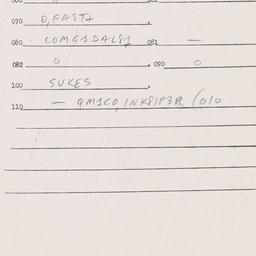 070 O,FAST+
080 COMG1DAL81 081 —
082 0 090 0
100 SUKES
110 — QM1CO,INK8IP3R (0/0